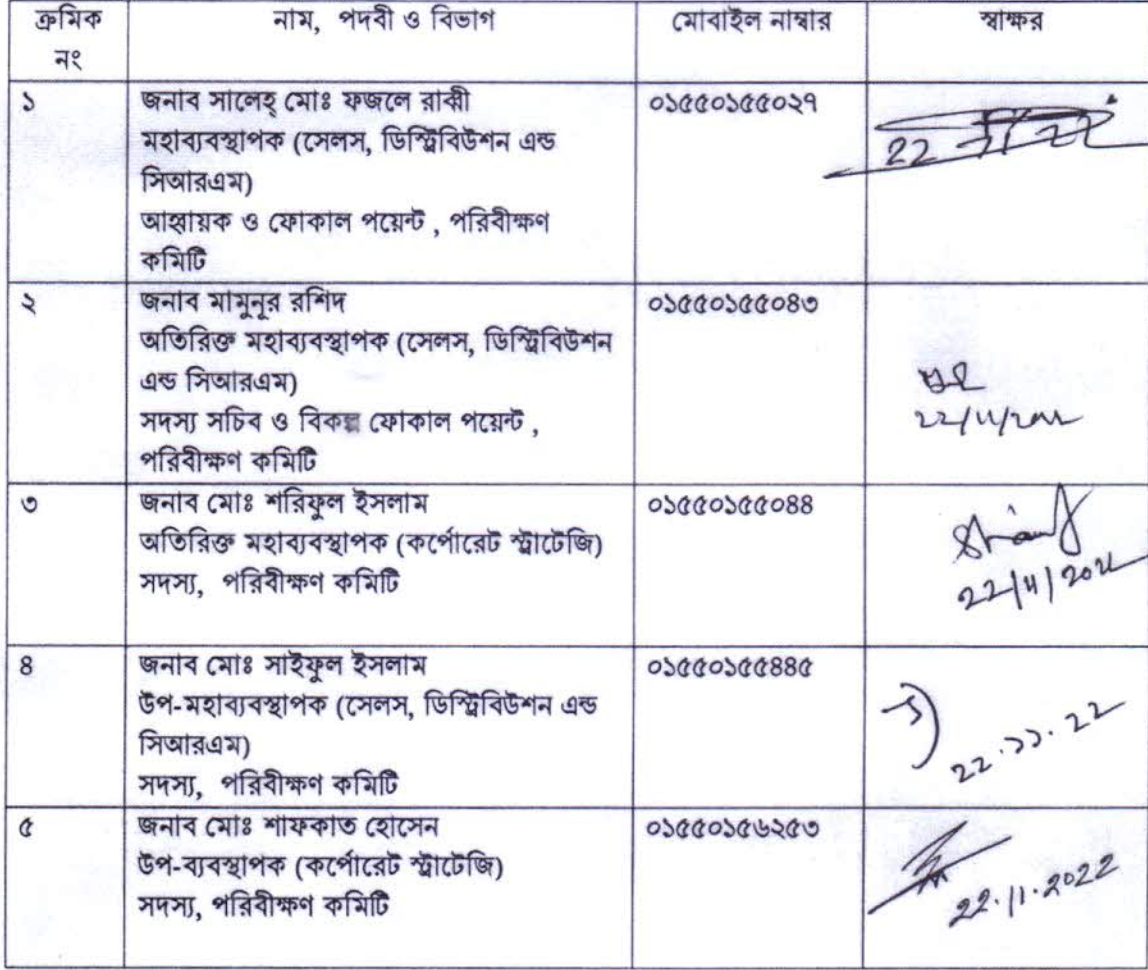 ক্রমিক নং
নাম, পদবী ও বিভাগ
মোবাইল নাম্বার
স্বাক্ষর
১
জনাব সালেহ্ মোঃ ফজলে রাব্বী
মহাব্যবস্থাপক (সেলস, ডিস্ট্রিবিউশন এন্ড
সিআরএম)
আহ্বায়ক ও ফোকাল পয়েন্ট , পরিবীক্ষণ
কমিটি
০১৫৫০১৫৫০২৭
২
জনাব মামুনূর রশিদ
অতিরিক্ত মহাব্যবস্থাপক (সেলস, ডিস্ট্রিবিউশন
এন্ড সিআরএম)
সদস্য সচিব ও বিকল্প ফোকাল পয়েন্ট ,
পরিবীক্ষণ কমিটি
০১৫৫০১৫৫০৪৩
৩
জনাব মোঃ শরিফুল ইসলাম
অতিরিক্ত মহাব্যবস্থাপক (কর্পোরেট স্ট্রাটেজি)
সদস্য, পরিবীক্ষণ কমিটি
০১৫৫০১৫৫০৪৪
22/11/2022
৪
জনাব মোঃ সাইফুল ইসলাম
উপ-মহাব্যবস্থাপক (সেলস, ডিস্ট্রিবিউশন এন্ড
সিআরএম)
সদস্য, পরিবীক্ষণ কমিটি
০১৫৫০১৫৫৪৪৫
22.১১.22
৫
জনাব মোঃ শাফকাত হোসেন
উপ-ব্যবস্থাপক (কর্পোরেট স্ট্রাটেজি)
সদস্য, পরিবীক্ষণ কমিটি
০১৫৫০১৫৬২৫৩
22.11.2022